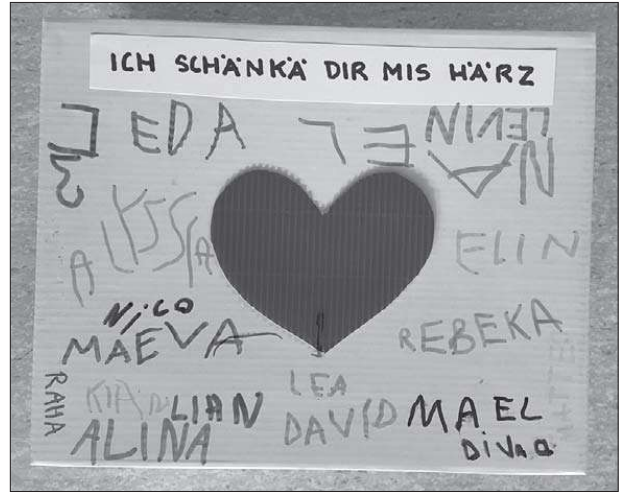 ICH SCHÄNKÄ DIR MIS HÄRZ
EDA
LEVIN
ALYSSA
ELIN
NICO
MAEVA
REBEKA
RAHA
LEA
KIAN LIAN
DAVID
MAEL
ALINA